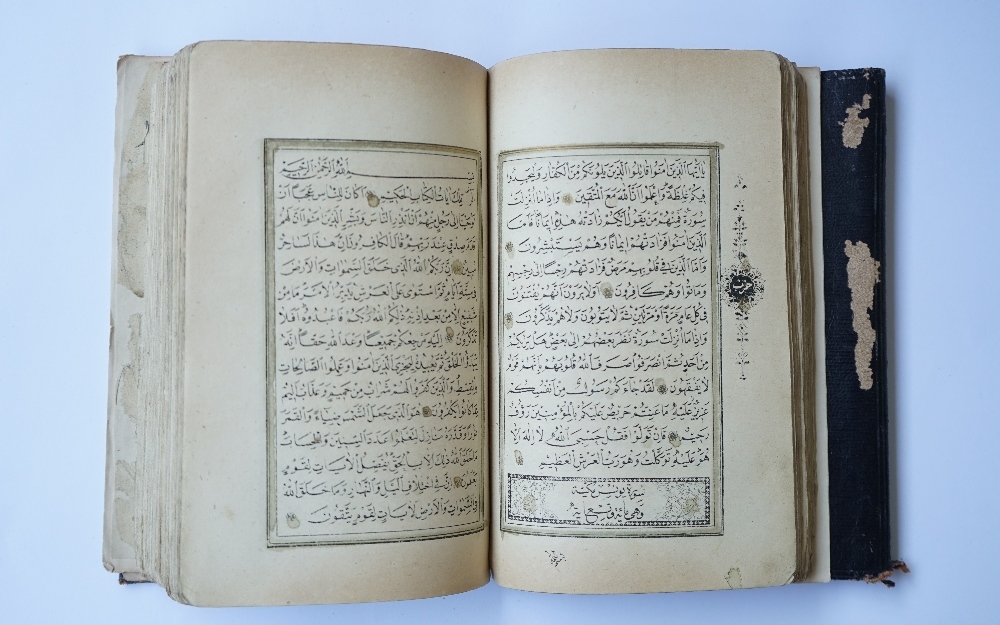 يا ايها الذين امنوا قاتلوا الذين يلونكم من الكفار وليجدوا
فيكم غلظة واعلموا ان الله مع المتقين واذا ما انزلت
سورة فمنهم من يقول ايكم زادته هذه ايمانا فاما
الذين امنوا فزادتهم ايمانا وهم يستبشرون
واما الذين في قلوبهم مرض فزادتهم رجسا الى رجسهم
وماتوا وهم كافرون اولا يرون انهم يفتنون
في كل عام مرة او مرتين ثم لا يتوبون ولا هم يذكرون
واذا ما انزلت سورة نظر بعضهم الى بعض هل يريكم
من احد ثم انصرفوا صرف الله قلوبهم بانهم قوم
لا يفقهون لقد جاءكم رسول من انفسكم
عزيز عليه ما عنتم حريص عليكم بالمؤمنين رؤف
رحيم فان تولوا فقل حسبي الله لا اله الا
هو عليه توكلت وهو رب العرش العظيم
سورة يونس مكية
وهي مائة وتسع
حزب
بسم الله الرحمن الرحيم
الر تلك ايات الكتاب الحكيم اكان للناس عجبا ان
اوحينا الى رجل منهم ان انذر الناس وبشر الذين امنوا ان لهم
قدم صدق عند ربهم قال الكافرون ان هذا لساحر
مبين ان ربكم الله الذي خلق السموات والارض
في ستة ايام ثم استوى على العرش يدبر الامر ما من
شفيع الا من بعد اذنه ذلكم الله ربكم فاعبدوه افلا
تذكرون اليه مرجعكم جميعا وعد الله حقا انه
يبدؤ الخلق ثم يعيده ليجزي الذين امنوا وعملوا الصالحات
بالقسط والذين كفروا لهم شراب من حميم وعذاب اليم
بما كانوا يكفرون هو الذي جعل الشمس ضياء والقمر
نورا وقدره منازل لتعلموا عدد السنين والحساب
ما خلق الله ذلك الا بالحق يفصل الايات لقوم
يعلمون ان في اختلاف الليل والنهار وما خلق الله
في السموات والارض لايات لقوم يتقون